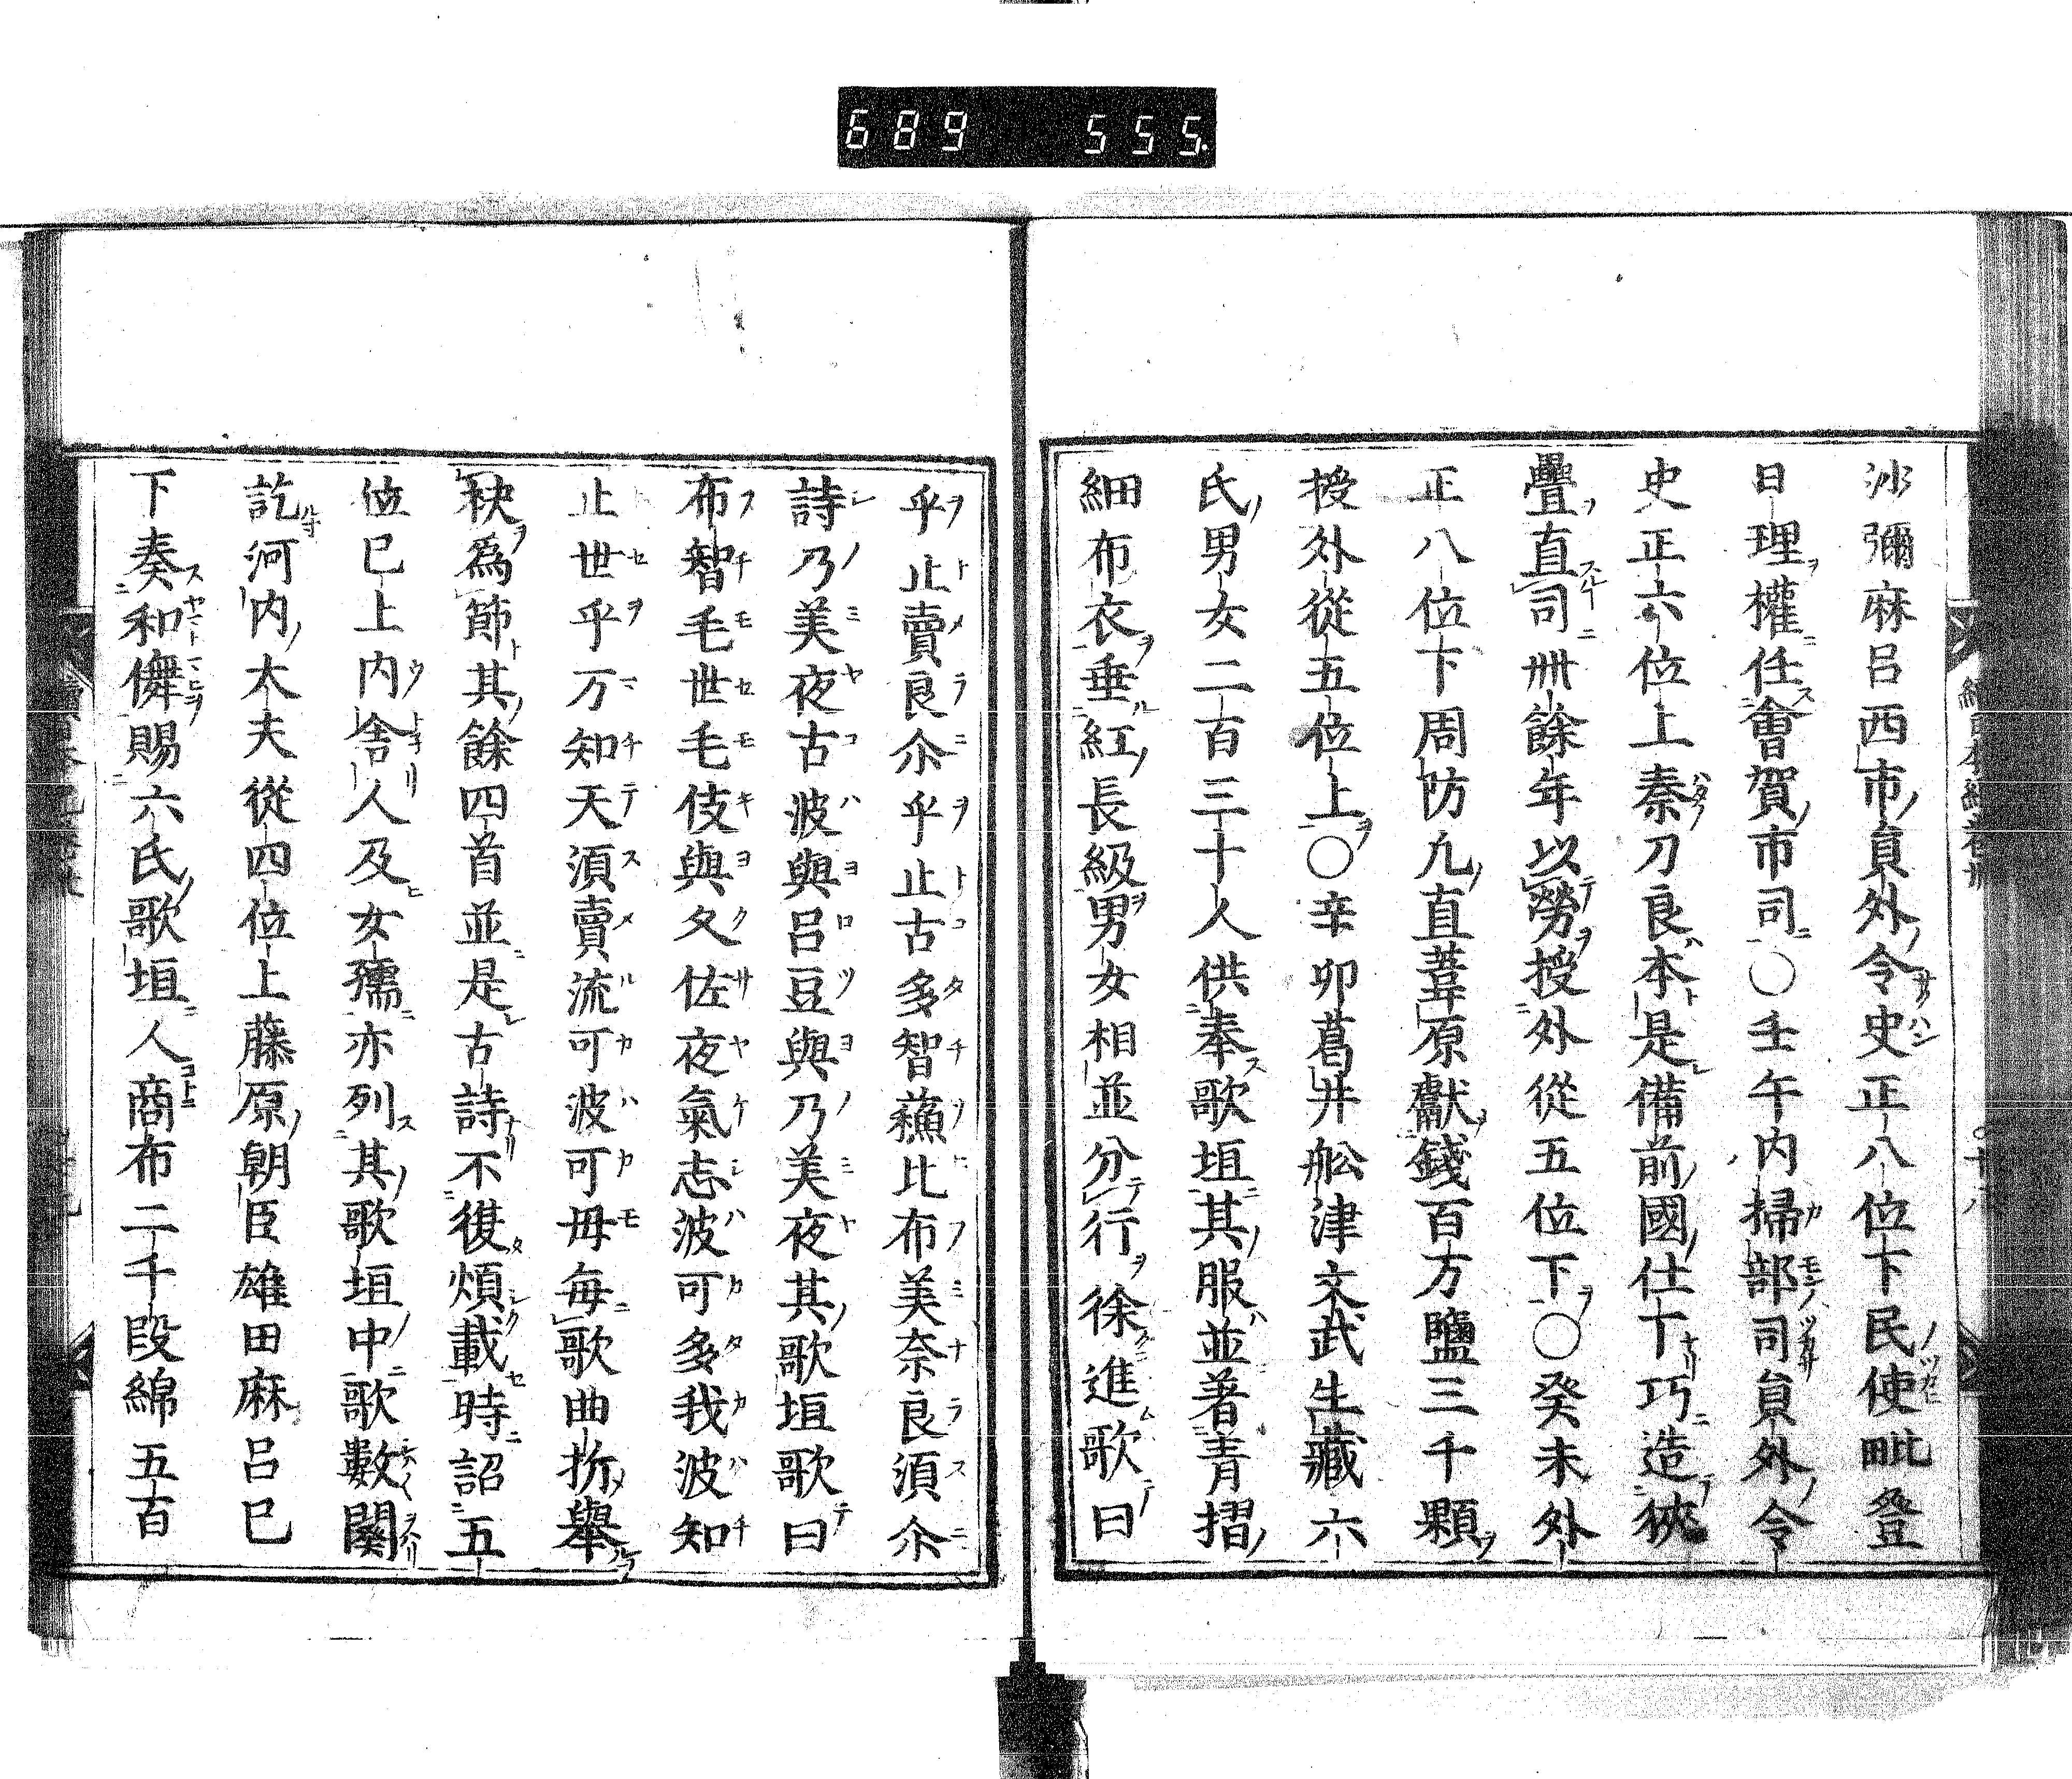 689 555.
沙彌麻呂西市員外令史正八位下民使毗登
日理權任會賀市司〇壬午内掃部司員外令
史正六位上秦刀良本是備前國仕丁巧造狹
疊直司卌餘年以勞授外從五位下〇癸未外
正八位下周防凡直葦原獻錢百万鹽三千顆
授外從五位上〇辛卯葛井舩津文武生藏六
氏男女二百三十人供奉歌垣其服並著青摺
細布衣垂紅長級男女相並分行徐進歌曰
乎止賣良尒乎止古多智蘓比布美奈良須尒
詩乃美夜古波與呂豆與乃美夜其歌垣歌曰
布智毛世毛伎與久佐夜氣志波可多我波知
止世乎万知天須賣流可波可母毎歌曲折舉
袂爲節其餘四首並是古詩不復煩載時詔五
位已上内舎人及女孺亦列其歌垣中歌數闋
訖河内大夫從四位上藤原朝臣雄田麻呂已
下奏和儛賜六氏歌垣人商布二千段綿五百